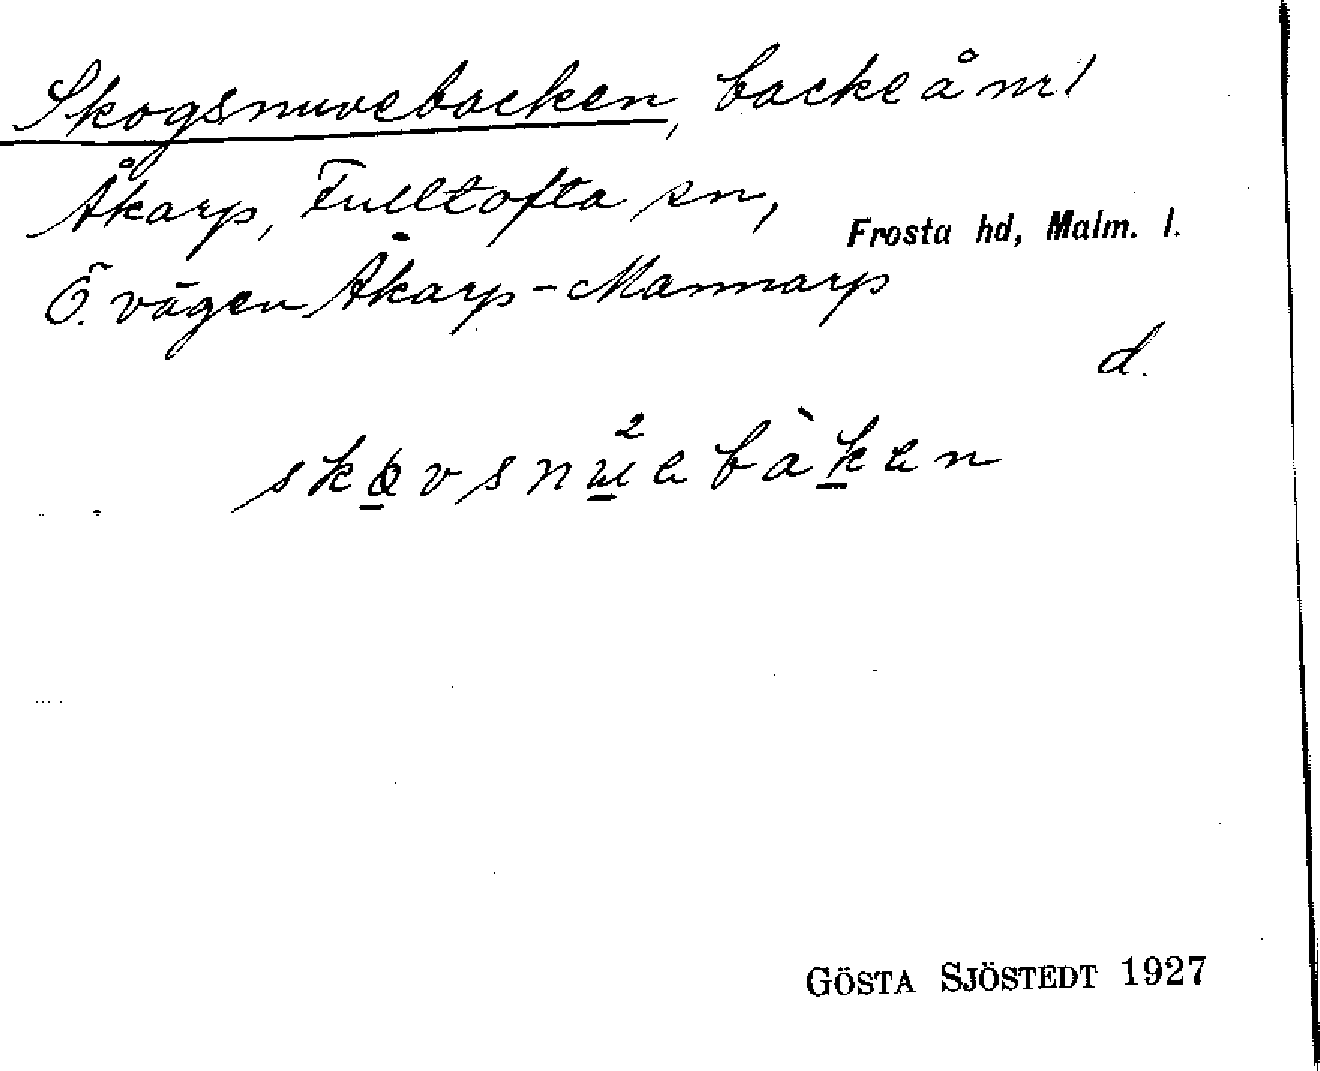 Skogsnuvebacken, backe å nr 1
Åkarp, Fulltofta sn, Frosta hd, Malm. l.
Ö. vägen Åkarp-Mannarp
d.
GÖSTA SJÖSTEDT 1927